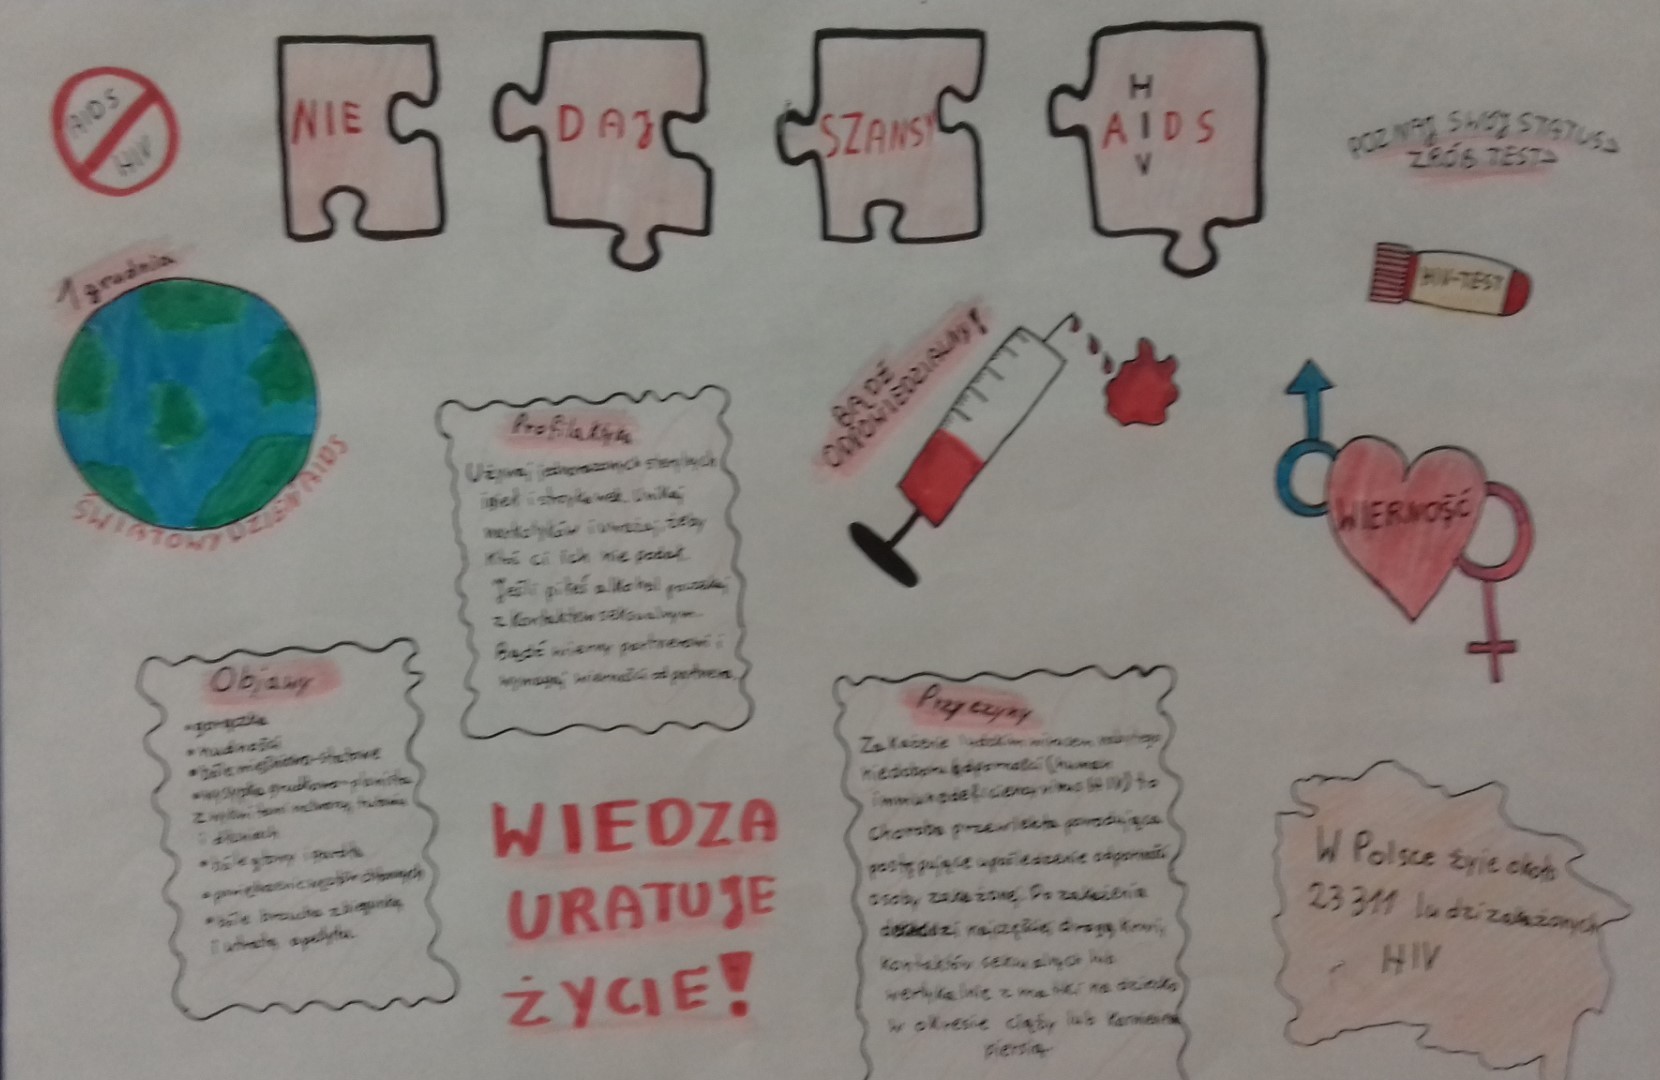 AIDS
HIV
NIE
DAJ
SZANSY
H
AIDS
V
POZNAJ SWÓJ STATUS
ZRÓB TEST
1 grudnia
ŚWIATOWY DZIEŃ AIDS
HIV-TEST
BĄDŹ
ODPOWIEDZIALNY!
WIERNOŚĆ
Profilaktyka
Używaj jednorazowych sterylnych
igieł i strzykawek. Unikaj
narkotyków i uważaj, żeby
ktoś ci ich nie podał.
Jeśli piłeś alkohol poczekaj
z kontaktem seksualnym.
Bądź wierny partnerowi i
wymagaj wierności od partnera.
Objawy
• gorączka
• nudności
• bóle mięśniowo-stawowe
• wysypka grudkowo-plamista
z wykwitami na twarzy, tułowiu
i dłoniach
• bóle głowy i gardła
• powiększenie węzłów chłonnych
• bóle brzucha z biegunką
i utratą apetytu.
WIEDZA
URATUJE
ŻYCIE!
Przyczyny
Zakażenie ludzkim wirusem
niedoboru odporności (human
immunodeficiency virus HIV) to
choroba przewlekła powodująca
postępujące upośledzenie odporności
osoby zakażonej. Do zakażenia
dochodzi najczęściej drogą krwi,
kontaktów seksualnych lub
wertykalnie z matki na dziecko
w okresie ciąży lub karmienia
piersią
W Polsce żyje około
23 311 ludzi zakażonych
HIV